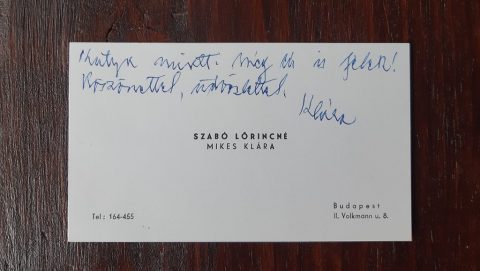 Kutya miatt. Még is felek!
Köszönettel, üdvözlettel.
Klára
SZABÓ LŐRINCNÉ
MIKES KLÁRA
Tel: 164-455
Budapest
II. Volkmann u. 8.